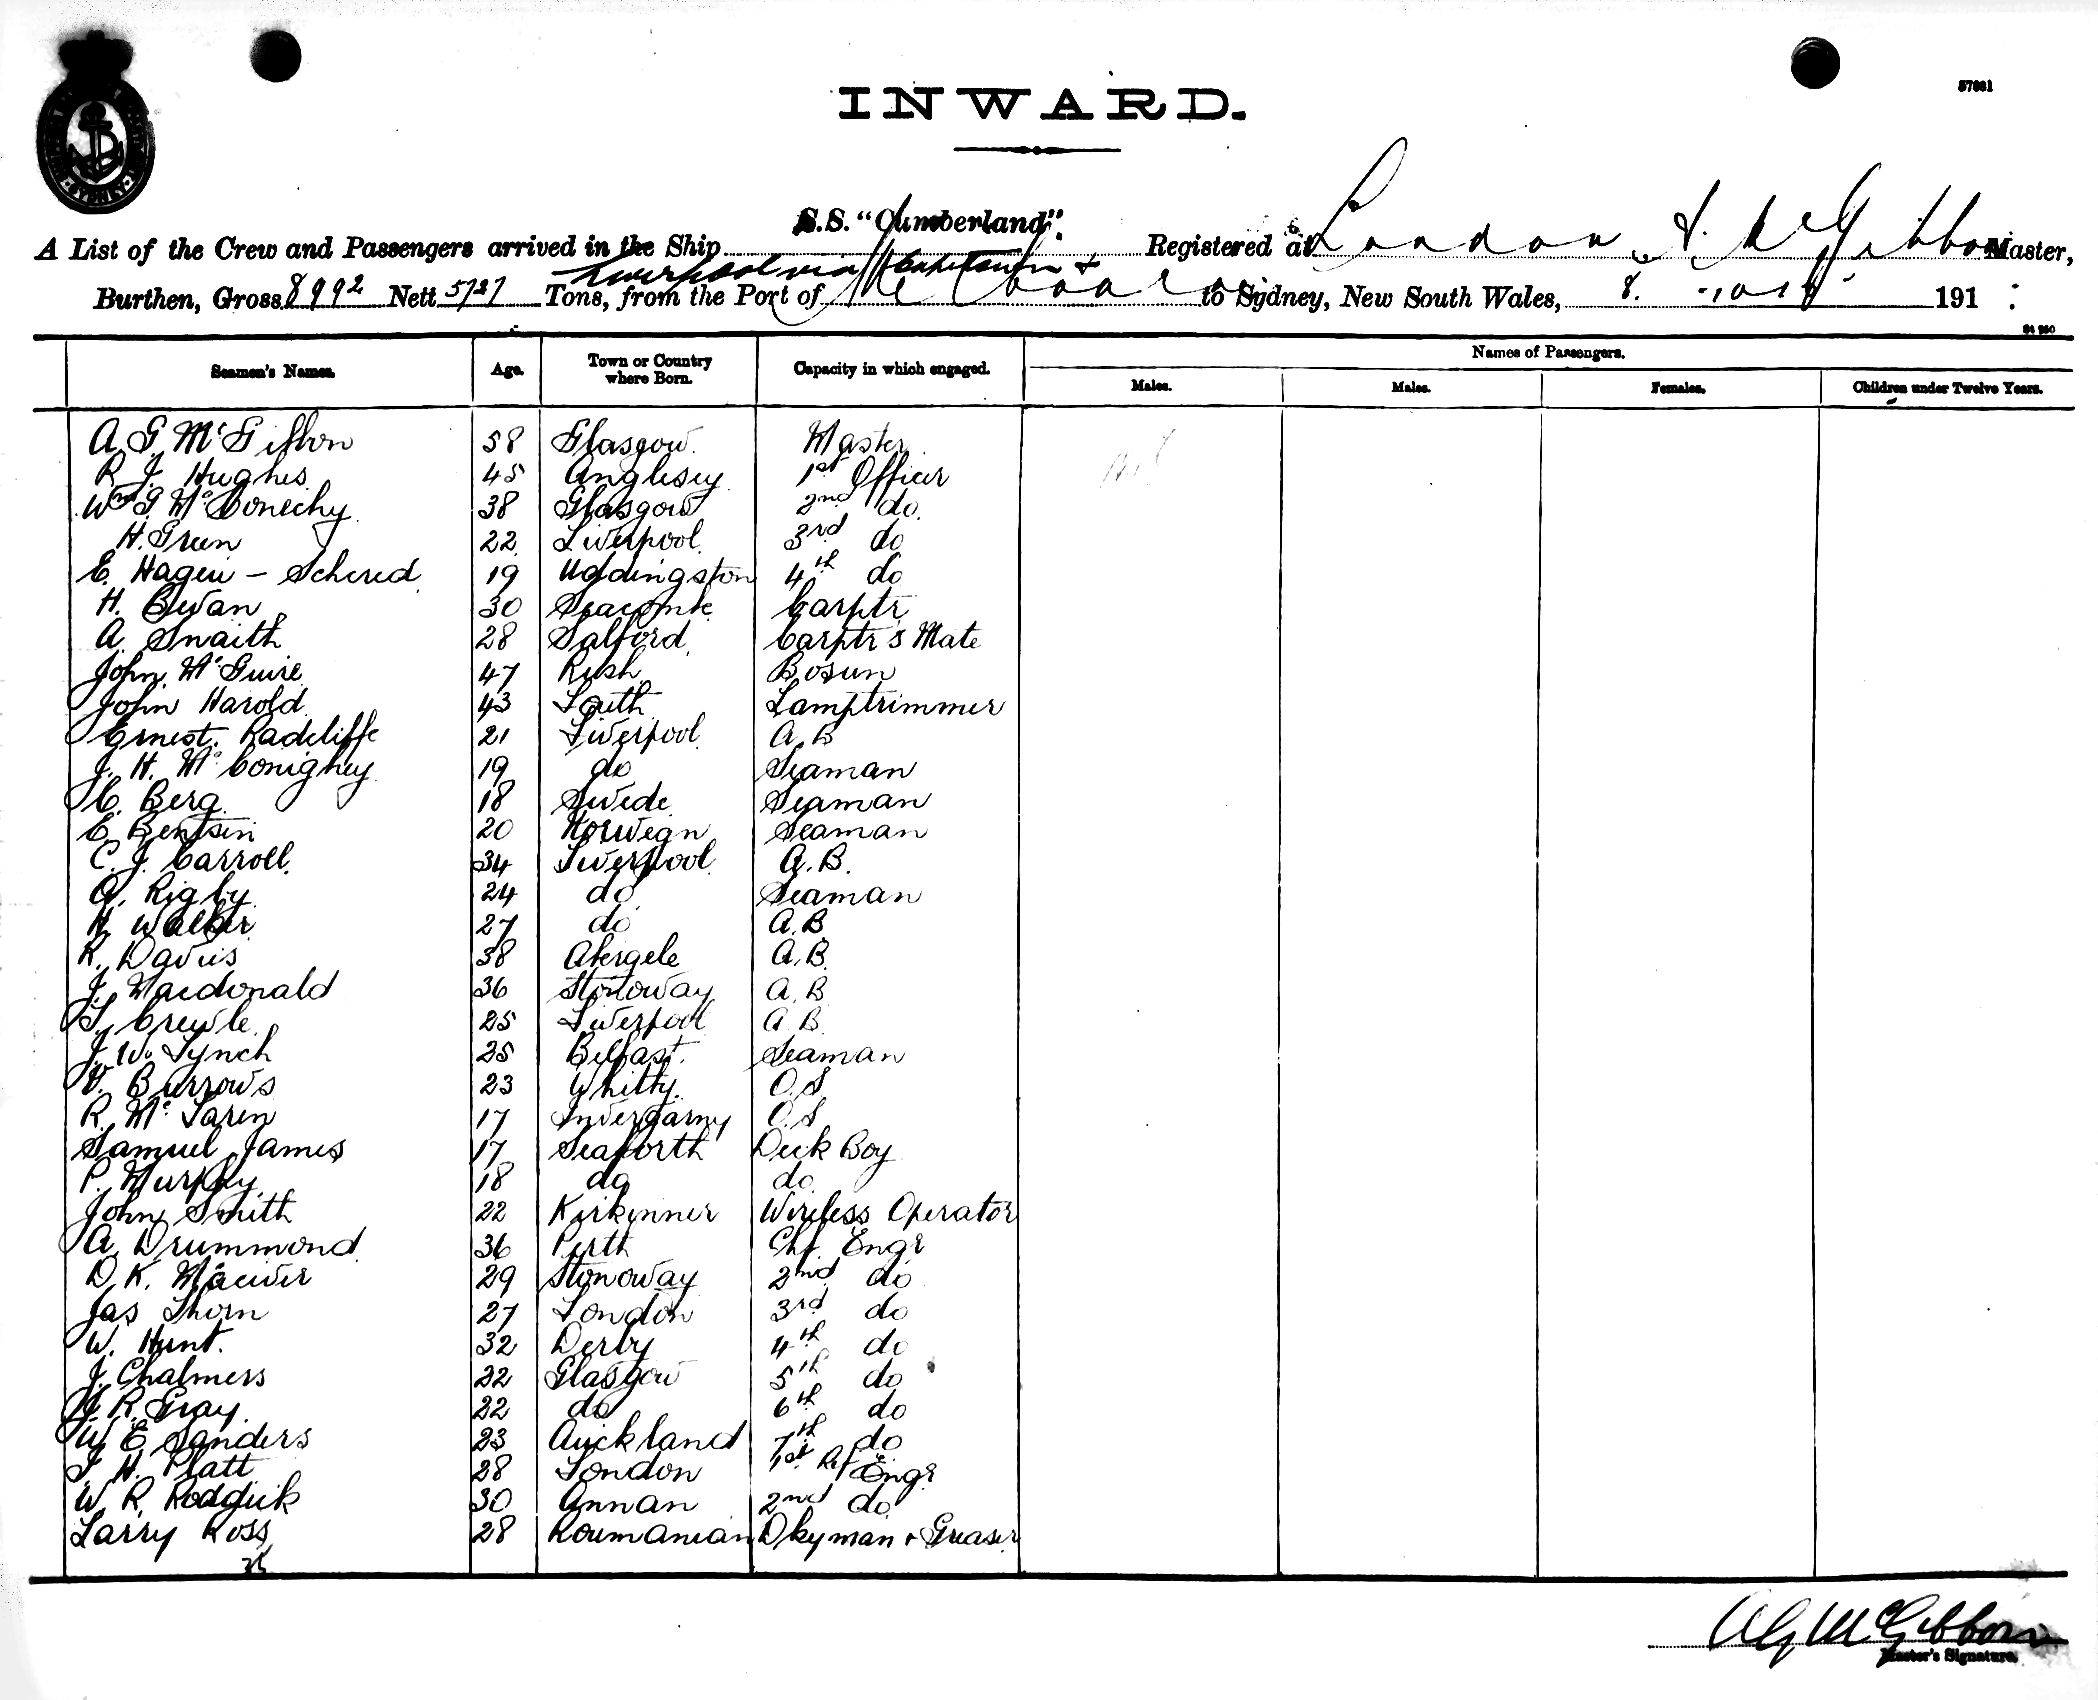 57881
INWARD.
S.S. "Cumberland".
A List of the Crew and Passengers arrived in the Ship Registered at London McGibbon Master,
Liverpool via Capetown &
Burthen, Gross 8992 Nett Tons, from the Port of to Sydney, New South Wales, 8. 191
Names of Passengers.
Seamen's Names. Age. Town or Country where Born. Capacity in which engaged. Males. Males. Females. Children under Twelve Years.
A G McGibbon 58 Glasgow Master
R J. Hughes 45 Anglesey 1st Officer
Wm G McConechy 38 Glasgow 2nd do.
H. Green 22 Liverpool 3rd do
E. Hagen - Schered 19 Uddingston 4th do
H. Bevan 30 Seacombe Carptr
A. Snaith 28 Salford Carptr's Mate
John McGuire 47 Rush Bosun
John Harold 43 Louth Lamptrimmer
Ernest Radcliffe 21 Liverpool A.B
J. H. McConighey 19 do Seaman
C. Berg 18 Swede Seaman
E Bentsen 20 Norwegn Seaman
C. J. Carroll. 34 Liverpool A.B.
A. Rigby 24 do Seaman
H Walker 27 do A.B
R. Davies 38 Abergele A.B.
J. Macdonald 36 Stonoway A.B
Crewe 25 Liverpool A B
J. W. Lynch 25 Belfast. Seaman
Burrows 23 Whitby. O.S
R. McLaren 17 Invergarny O.S
Samuel James 17 Seaforth Deck Boy
P. Murphy 18 do do
John Smith 22 Kirkinner Wireless Operator
A Drummond 36 Perth Chf. Engr
D. K. Maciver 29 Stonoway 2nd do
Jas Thorn 27 London 3rd do
W. Hunt. 32 Derby 4th do
J. Chalmers 22 Glasgow 5th do
J R. Gray 22 do 6th do
W. E. Sanders 23 Auckland 7th do
H. Platt 28 London 1st Ref Engr
W. R. Roddick 30 Annan 2nd do
Larry Ross 28 Roumanian Dkyman & Greaser
35
A G McGibbon
Master's Signature.